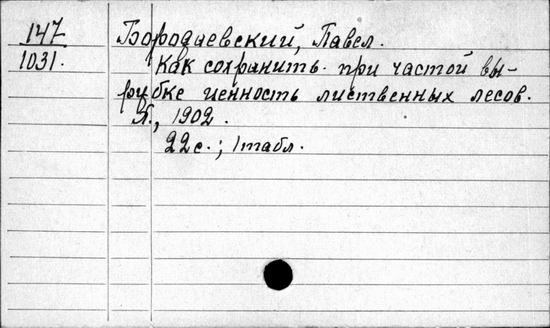 147 Бородаевский, Павел.
1031. Как сохранить при частой вы-
рубке ценность лиственных лесов.
Я., 1902.
22с.; 1 табл.